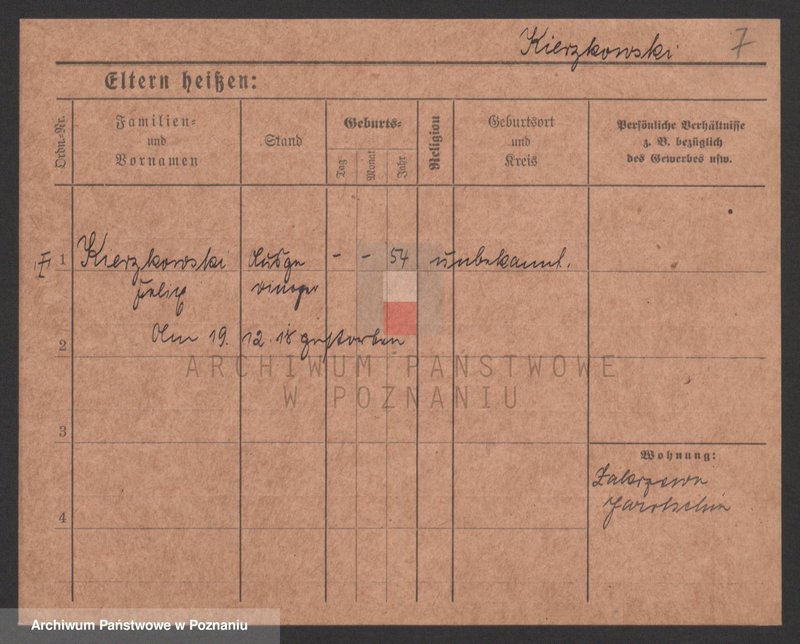 Kierzkowski 7
Eltern heißen:
Ordn.-Nr.
Familien-
und
Vornamen
Stand
Geburts-
Tag
Monat
Jahr
Religion
Geburtsort
und
Kreis
Persönliche Verhältnisse
z. B. bezüglich
des Gewerbes usw.
1 Kierzkowski - - 54 unbekannt.
Am 19. 12. 18 gestorben
2
3
4
Wohnung:
Zakrzewo
Jarotschin
ARCHIWUM PAŃSTWOWE
W POZNANIU
Archiwum Państwowe w Poznaniu